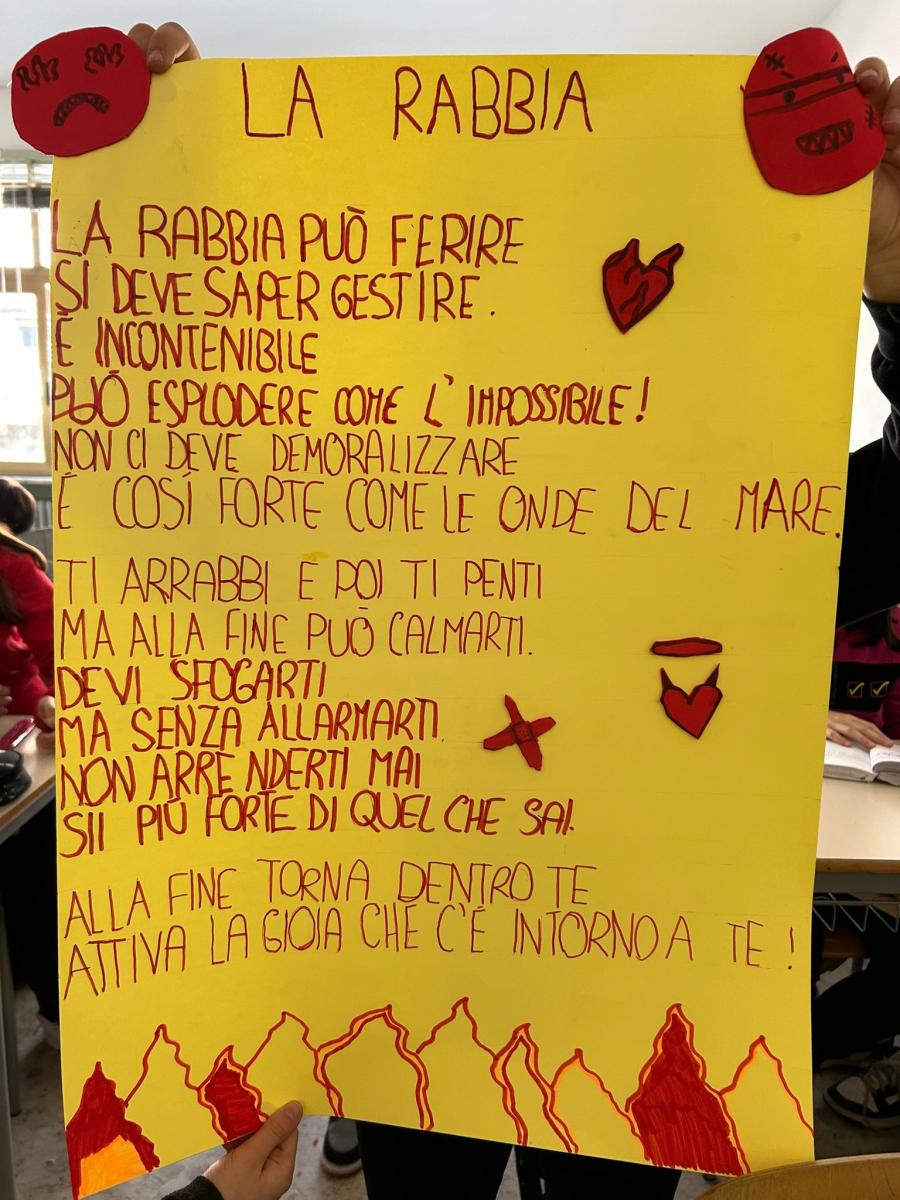 LA RABBIA
LA RABBIA PUÒ FERIRE
SI DEVE SAPER GESTIRE.
È INCONTENIBILE
PUÒ ESPLODERE COME L'IMPOSSIBILE!
NON CI DEVE DEMORALIZZARE
É COSÍ FORTE COME LE ONDE DEL MARE.
TI ARRABBI E POI TI PENTI
MA ALLA FINE PUÒ CALMARTI.
DEVI SFOGARTI
MA SENZA ALLARMARTI.
NON ARRENDERTI MAI
SII PIÙ FORTE DI QUEL CHE SAI.
ALLA FINE TORNA DENTRO TE
ATTIVA LA GIOIA CHE C'É INTORNO A TE!